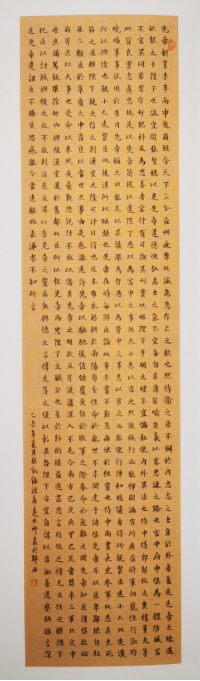 先帝創業未半而中道崩殂今天下三分益州疲弊此誠危急存亡之秋也然侍衛之臣不懈於內忠志之士忘身於外者蓋追先帝之殊遇
欲報之於陛下也誠宜開張聖聽以光先帝遺德恢弘志士之氣不宜妄自菲薄引喻失義以塞忠諫之路也宮中府中俱為一體陟罰臧否
不宜異同若有作奸犯科及為忠善者宜付有司論其刑賞以昭陛下平明之理不宜偏私使內外異法也侍中侍郎郭攸之費禕董允等
此皆良實志慮忠純是以先帝簡拔以遺陛下愚以為宮中之事事無大小悉以咨之然後施行必能裨補闕漏有所廣益將軍向寵性行淑均
曉暢軍事試用於昔日先帝稱之曰能是以眾議舉寵為督愚以為營中之事悉以咨之必能使行陣和睦優劣得所親賢臣遠小人此先漢
所以興隆也親小人遠賢臣此後漢所以傾頹也先帝在時每與臣論此事未嘗不歎息痛恨於桓靈也侍中尚書長史參軍此悉貞良死
節之臣願陛下親之信之則漢室之隆可計日而待也臣本布衣躬耕於南陽苟全性命於亂世不求聞達於諸侯先帝不以臣卑鄙猥自枉
屈三顧臣於草廬之中諮臣以當世之事由是感激遂許先帝以驅馳後值傾覆受任於敗軍之際奉命於危難之間爾來二十有一年矣先帝知臣謹慎
故臨崩寄臣以大事也受命以來夙夜憂歎恐託付不效以傷先帝之明故五月渡瀘深入不毛今南方已定兵甲已足當獎率三軍北定中
原庶竭駑鈍攘除姦凶興復漢室還於舊都此臣所以報先帝而忠陛下之職分也至於斟酌損益進盡忠言則攸之禕允之任也願陛下
託臣以討賊興復之效不效則治臣之罪以告先帝之靈若無興德之言則責攸之禕允等之慢以彰其咎陛下亦宜自謀以諮諏善道察納雅言深
追先帝遺詔臣不勝受恩感激今當遠離臨表涕零不知所言
乙未年夏月錄諸葛亮出師表於